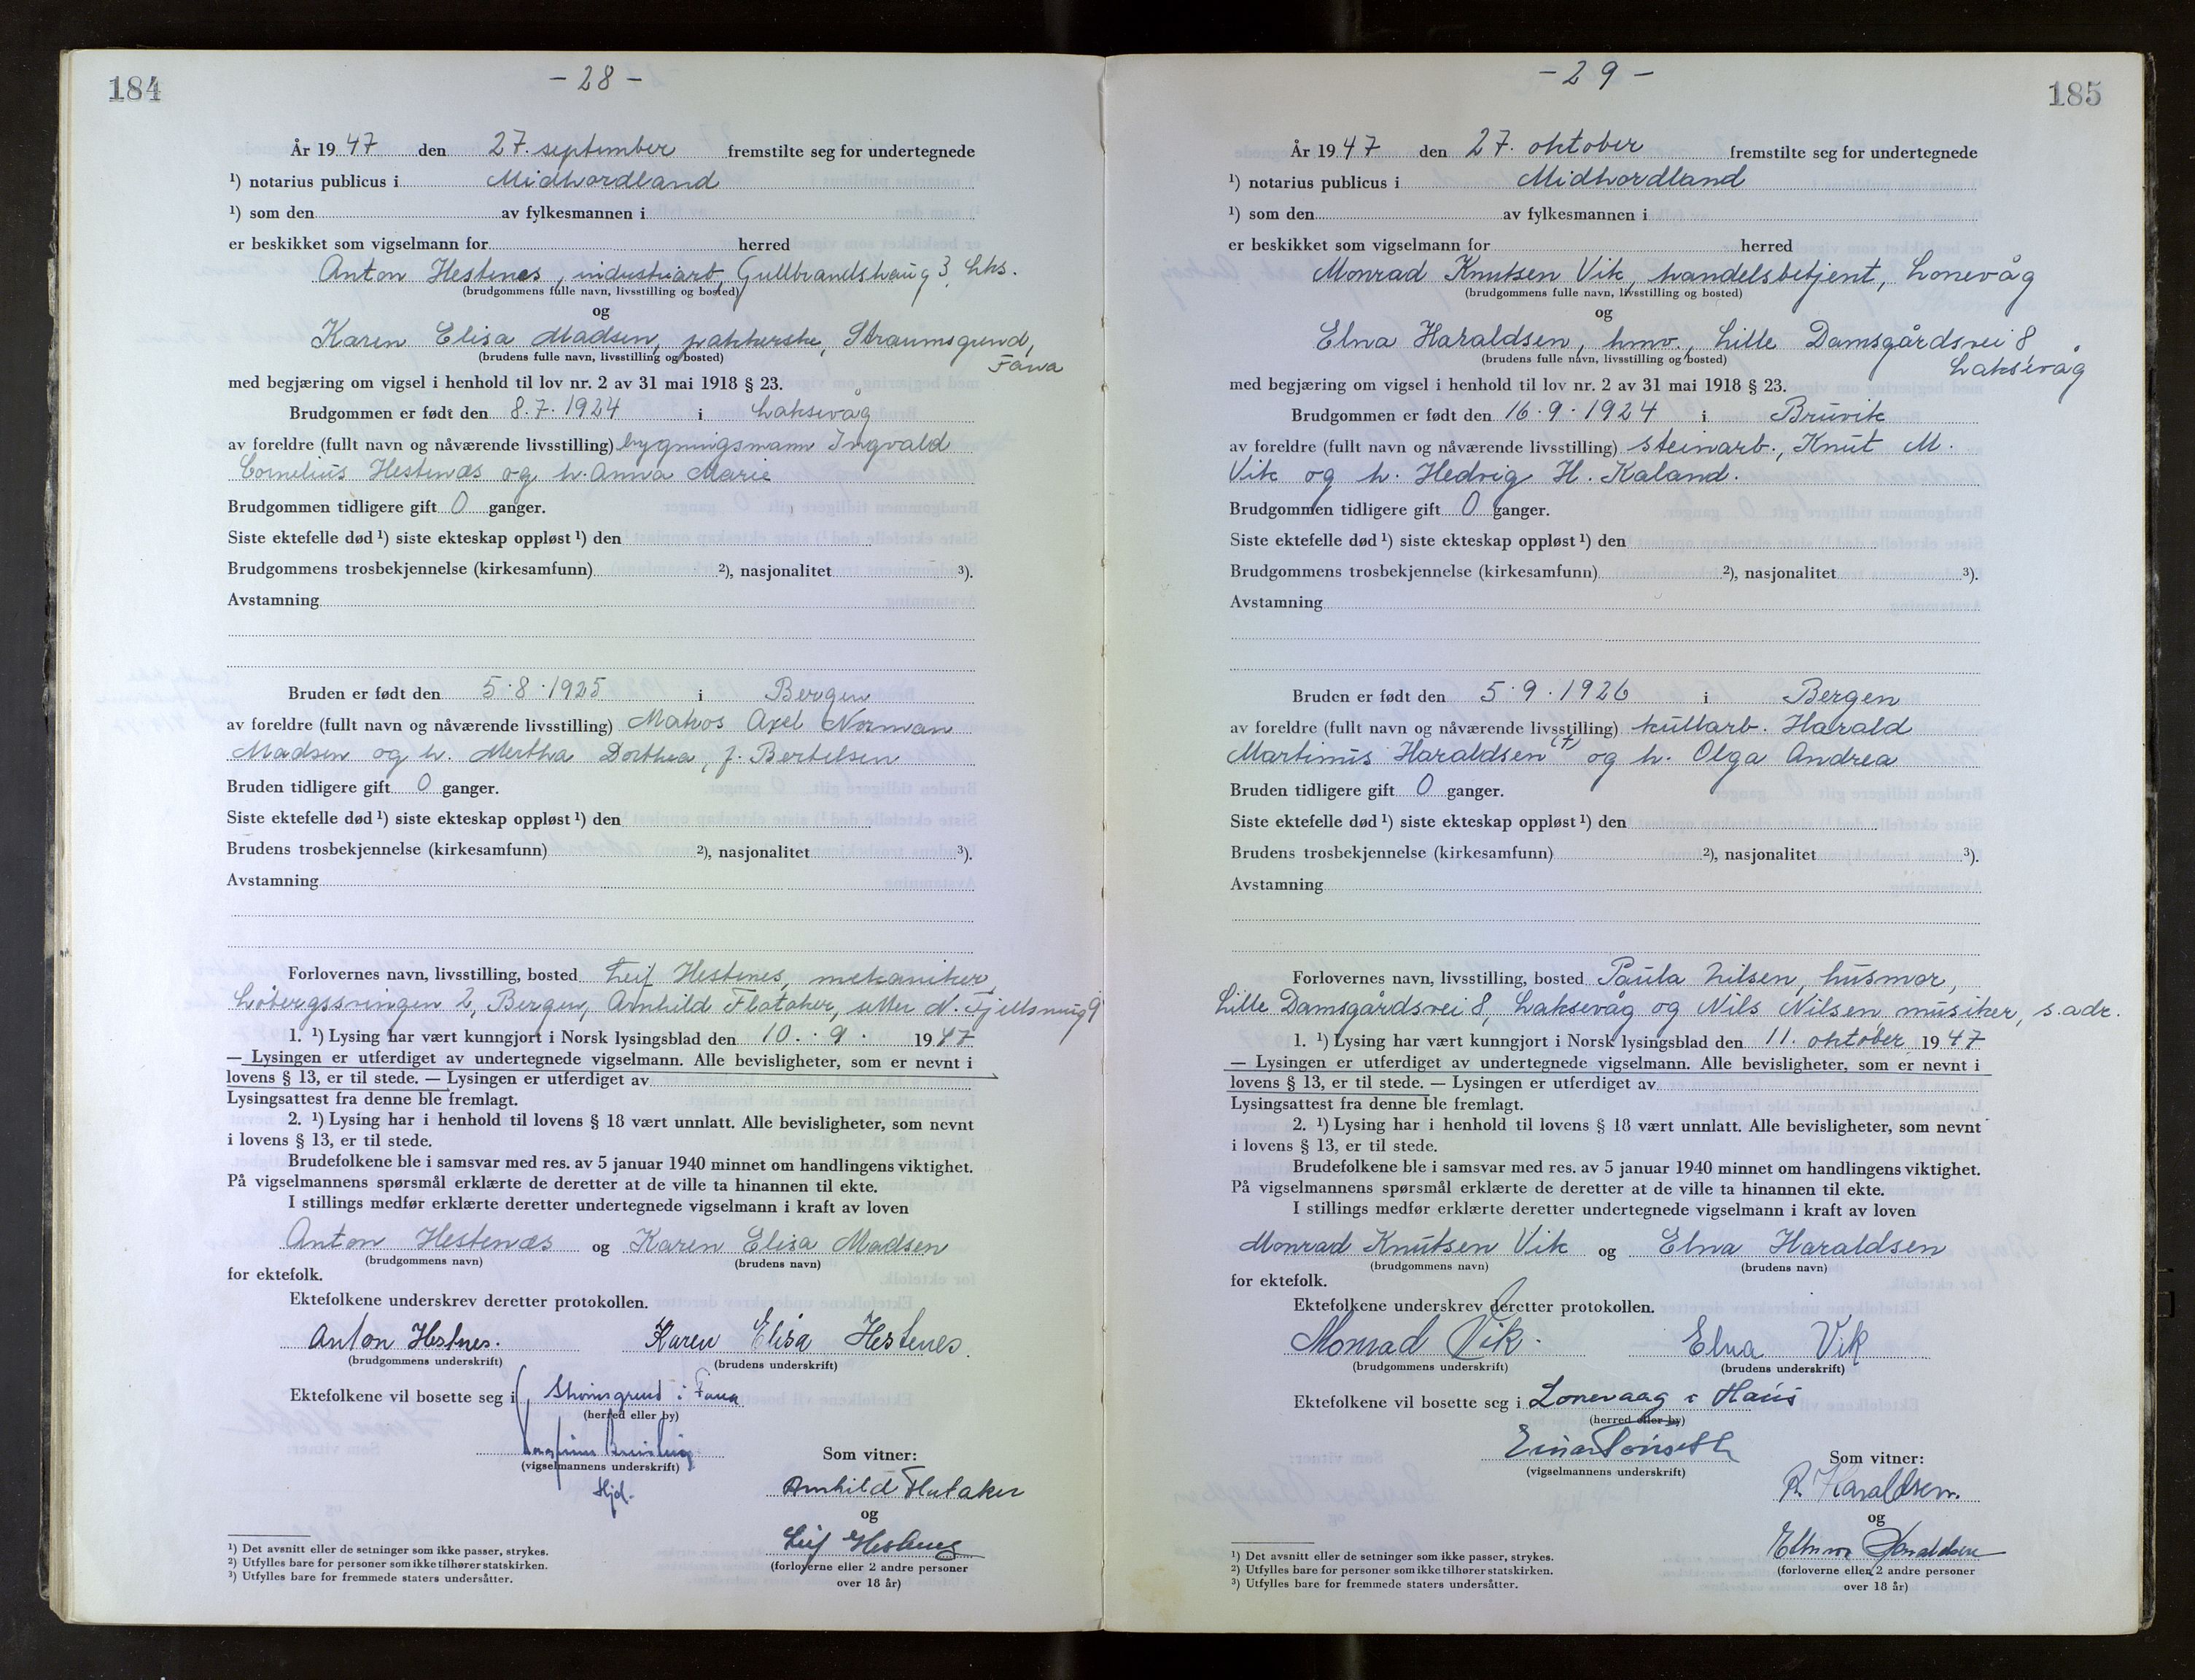 184
- 28 -
År 19 47 den 27. september fremstilte seg for undertegnede
¹) notarius publicus i Midhordland
¹) som den av fylkesmannen i
er beskikket som vigselmann for herred
Anton Hestenes, industriarb, Gullbrandshaug 3, Lks.
(brudgommens fulle navn, livsstilling og bosted)
og
Karen Elisa Madsen, pakkerske, Straumsgrund,
(brudens fulle navn, livsstilling og bosted)
Fana
med begjæring om vigsel i henhold til lov nr. 2 av 31 mai 1918 § 23.
Brudgommen er født den 8.7.1924 i Laksevåg
av foreldre (fullt navn og nåværende livsstilling) bygningsmann Ingvald
Cornelius Hestenæs og h. Anna Marie
Brudgommen tidligere gift 0 ganger.
Siste ektefelle død ¹) siste ekteskap oppløst ¹) den
Brudgommens trosbekjennelse (kirkesamfunn) ²), nasjonalitet ³).
Avstamning
Bruden er født den 5.8.1925 i Bergen
av foreldre (fullt navn og nåværende livsstilling) Axel Norman
Madsen og h. Dorthea, f. Bertelsen
Bruden tidligere gift 0 ganger.
Siste ektefelle død ¹) siste ekteskap oppløst ¹) den
Brudens trosbekjennelse (kirkesamfunn) ²), nasjonalitet ³).
Avstamning
Forlovernes navn, livsstilling, bosted Leif Hestenes, mekaniker,
Løbergssvingen 2, Bergen, Arnhild Flotaker,
1. ¹) Lysing har vært kunngjort i Norsk lysingsblad den 10. 9. 1947
— Lysingen er utferdiget av undertegnede vigselmann. Alle bevisligheter, som er nevnt i
lovens § 13, er til stede. — Lysingen er utferdiget av
Lysingsattest fra denne ble fremlagt.
2. ¹) Lysing har i henhold til lovens § 18 vært unnlatt. Alle bevisligheter, som nevnt
i lovens § 13, er til stede.
Brudefolkene ble i samsvar med res. av 5 januar 1940 minnet om handlingens viktighet.
På vigselmannens spørsmål erklærte de deretter at de ville ta hinannen til ekte.
I stillings medfør erklærte deretter undertegnede vigselmann i kraft av loven
Anton Hestenæs og Karen Elisa Madsen
(brudgommens navn) (brudens navn)
for ektefolk.
Ektefolkene underskrev deretter protokollen.
Anton Hestnes. Karen Elisa Hestenes.
(brudgommens underskrift) (brudens underskrift)
Ektefolkene vil bosette seg i i Fana
(herred eller by)
(vigselmannens underskrift)
Hjd.
Som vitner:
Arnhild Flotaker
og
Leif Hestenes
(forloverne eller 2 andre personer
over 18 år)
¹) Det avsnitt eller de setninger som ikke passer, strykes.
²) Utfylles bare for personer som ikke tilhører statskirken.
³) Utfylles bare for fremmede staters undersåtter.
185
- 29 -
År 19 47 den 27. oktober fremstilte seg for undertegnede
¹) notarius publicus i Midhordland
¹) som den av fylkesmannen i
er beskikket som vigselmann for herred
Monrad Knutsen Vik, handelsbetjent, Lonevåg
(brudgommens fulle navn, livsstilling og bosted)
og
Elna Haraldsen, hmv., Lille Damsgårdsvei 8
(brudens fulle navn, livsstilling og bosted)
Laksevåg
med begjæring om vigsel i henhold til lov nr. 2 av 31 mai 1918 § 23.
Brudgommen er født den 16.9.1924 i Bruvik
av foreldre (fullt navn og nåværende livsstilling) steinarb., Knut M.
Vik og h. Hedvig H. Kaland.
Brudgommen tidligere gift 0 ganger.
Siste ektefelle død ¹) siste ekteskap oppløst ¹) den
Brudgommens trosbekjennelse (kirkesamfunn) ²), nasjonalitet ³).
Avstamning
Bruden er født den 5.9.1926 i Bergen
av foreldre (fullt navn og nåværende livsstilling) kullarb. Harald
Martinus Haraldsen (†) og h. Olga Andrea
Bruden tidligere gift 0 ganger.
Siste ektefelle død ¹) siste ekteskap oppløst ¹) den
Brudens trosbekjennelse (kirkesamfunn) ²), nasjonalitet ³).
Avstamning
Forlovernes navn, livsstilling, bosted Paula Nilsen, husmor,
Lille Damsgårdsvei 8, Laksevåg og Nils Nilsen musiker, s. adr.
1. ¹) Lysing har vært kunngjort i Norsk lysingsblad den 11. oktober 1947
— Lysingen er utferdiget av undertegnede vigselmann. Alle bevisligheter, som er nevnt i
lovens § 13, er til stede. — Lysingen er utferdiget av
Lysingsattest fra denne ble fremlagt.
2. ¹) Lysing har i henhold til lovens § 18 vært unnlatt. Alle bevisligheter, som nevnt
i lovens § 13, er til stede.
Brudefolkene ble i samsvar med res. av 5 januar 1940 minnet om handlingens viktighet.
På vigselmannens spørsmål erklærte de deretter at de ville ta hinannen til ekte.
I stillings medfør erklærte deretter undertegnede vigselmann i kraft av loven
Monrad Knutsen Vik og Elna Haraldsen
(brudgommens navn) (brudens navn)
for ektefolk.
Ektefolkene underskrev deretter protokollen.
Monrad Vik. Elna Vik
(brudgommens underskrift) (brudens underskrift)
Ektefolkene vil bosette seg i Lonevaag i Haus
(herred eller by)
Einar
(vigselmannens underskrift)
Som vitner:
R. Haraldsen.
og
Haraldsen
(forloverne eller 2 andre personer
over 18 år)
¹) Det avsnitt eller de setninger som ikke passer, strykes.
²) Utfylles bare for personer som ikke tilhører statskirken.
³) Utfylles bare for fremmede staters undersåtter.